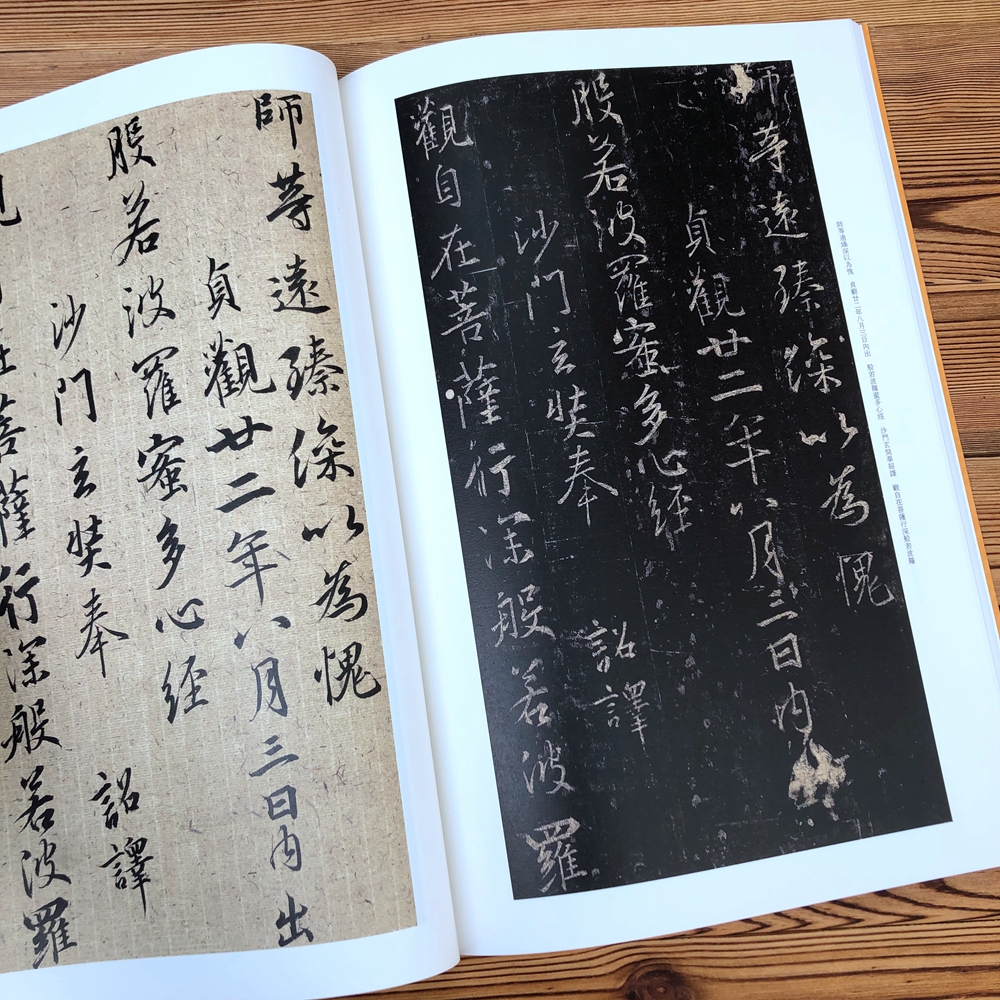 師等遠臻深以為愧 貞觀廿二年八月三日內出 般若波羅蜜多心經 沙門玄奘奉詔譯 觀自在菩薩行深般若波羅
師等遠臻深以為愧
貞觀廿二年八月三日內
般若波羅蜜多心經
沙門玄奘奉 詔譯
觀自在菩薩行深般若波羅
師等遠臻深以為愧
貞觀廿二年八月三日內出
般若波羅蜜多心經
沙門玄奘奉 詔譯
菩薩行深般若波羅